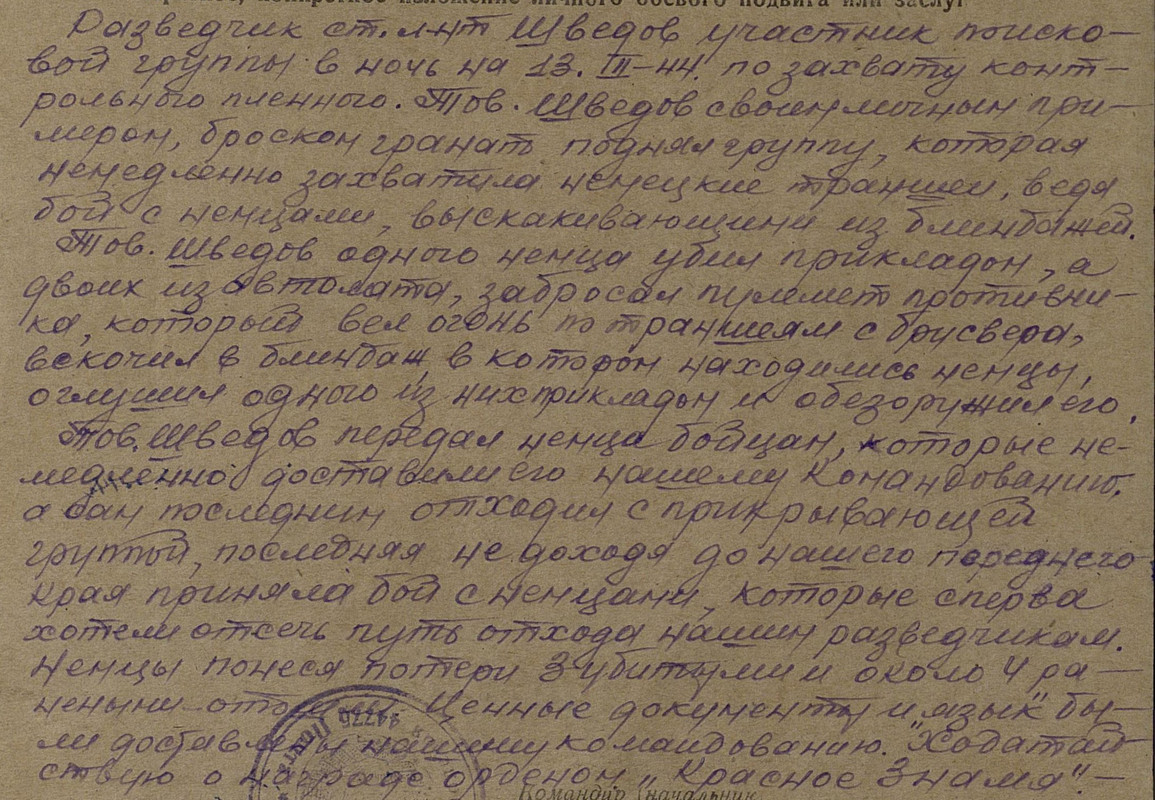 краткое, конкретное изложение личного боевого подвига или заслуг
Разведчик ст. л-нт Шведов участник поиско-
вой группы в ночь на 13. III-44. по захвату конт-
рольного пленного. Тов. Шведов своим личным при-
мером, броском гранат поднял группу, которая
немедленно захватила немецкие траншеи, ведя
бой с немцами, выскакивающими из блиндажей.
Тов. Шведов одного немца убил прикладом, а
двоих из автомата, забросал пулемет противни-
ка, который вел огонь по траншеям с бруствера,
вскочил в блиндаж, в котором находились немцы,
оглушил одного из них прикладом и обезоружил его.
Тов. Шведов передал немца бойцам, которые не-
медленно доставили его нашему командованию.
а сам последним отходил с прикрывающей
группой, последняя не доходя до нашего переднего
края приняла бой с немцами, которые сперва
хотели отсечь путь отхода нашим разведчикам.
Немцы понеся потери 3 убитыми и около 4 ра-
неными Ценные документы и "язык" бы-
ли доставлены нашему командованию. Ходатай
ствую о награде орденом „Красное Знамя" –
44226
Командир (начальник